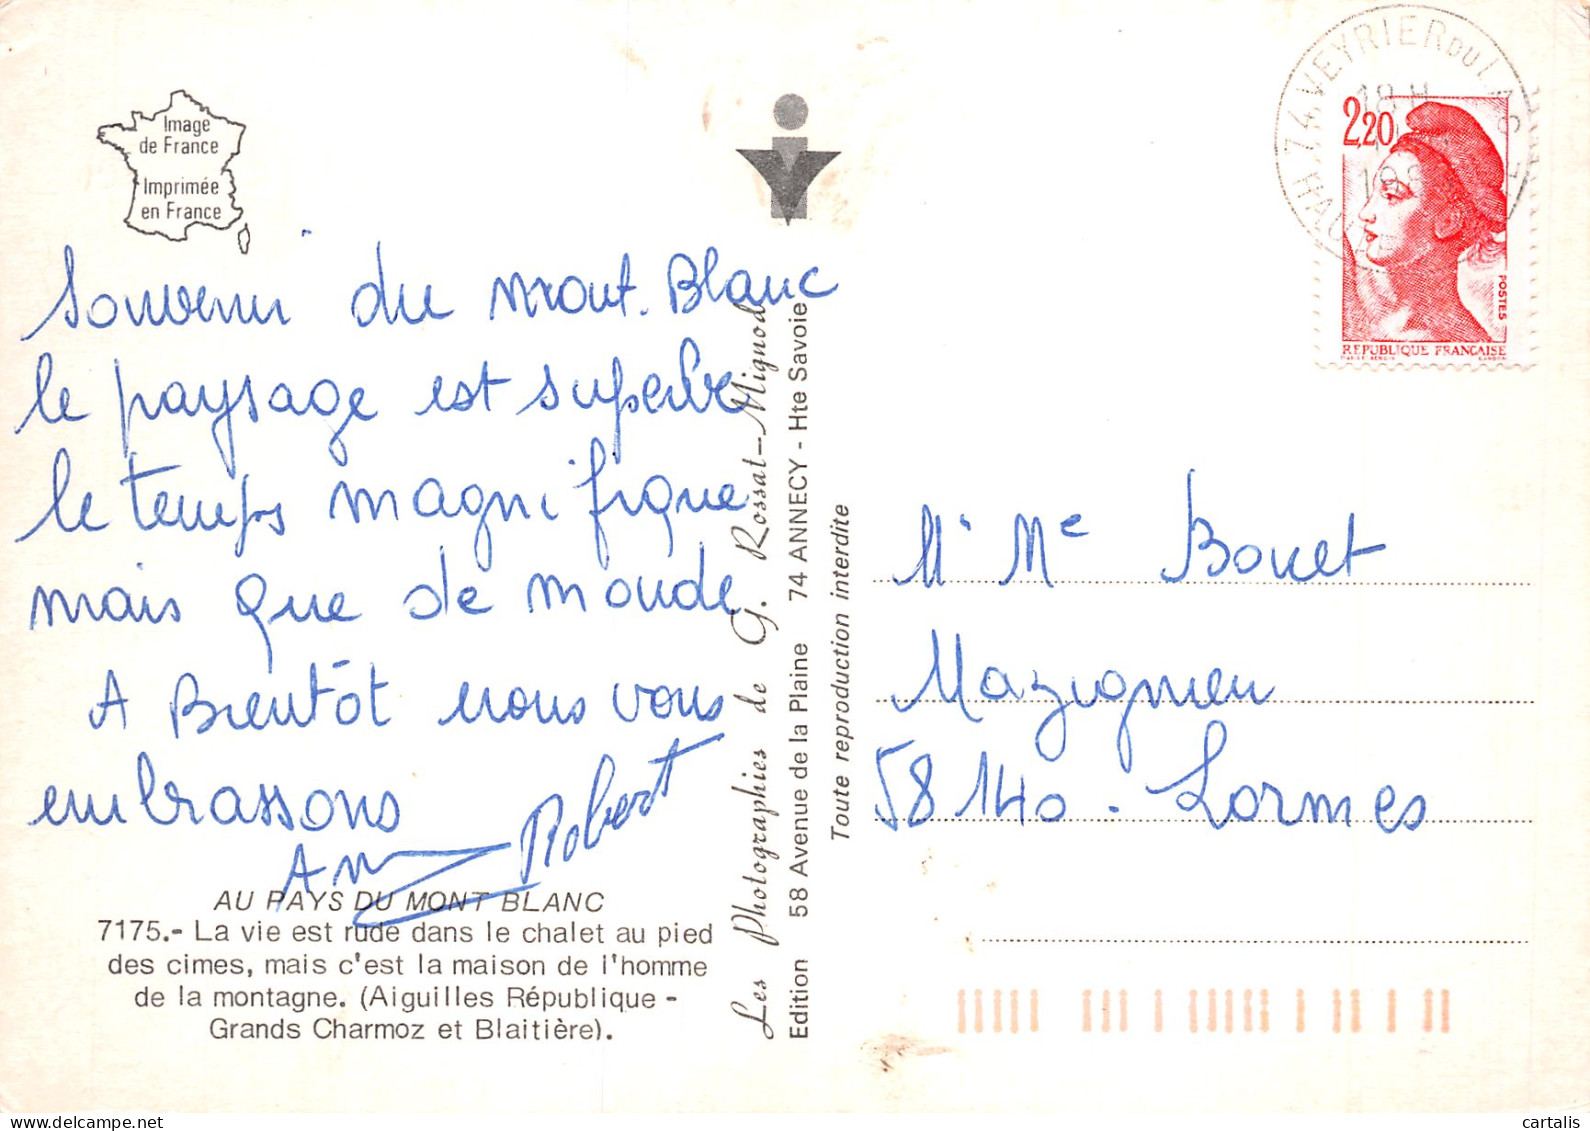 Image
de France
Imprimée
en France
Souvenir du Mont. Blanc
le paysage est superbe
le temps magnifique
mais que de monde
A Bientôt nous vous
embrassons
Robert
AU PAYS DU MONT BLANC
7175.- La vie est rude dans le chalet au pied
des cimes, mais c'est la maison de l'homme
de la montagne. (Aiguilles République -
Grands Charmoz et Blaitière).
Les Photographies de G. Rossat-Mignod
Edition 58 Avenue de la Plaine 74 ANNECY - Hte Savoie
Toute reproduction interdite
74 VEYRIER DU LAC
18 H
2,20
POSTES
REPUBLIQUE FRANÇAISE
M. Me Bouet
Mazignien
58140. Lormes
cartalis.com